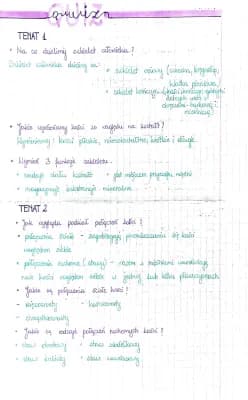 QUIZ
quizn
TEMAT 1
• Na co dzielimy szkielet człowieka?
Szkielet człowieka dzielimy na: • szkielet osiowy (czaszka, kręgosłup,
klatka piersiowa)
• szkielet kończyn (kości kończyn górnych
dolnych wraz z
obręczami - barkową i
miednicową)
• Jakie wyróżniamy kości ze względu na kształt?
Wyróżniamy: kości płaskie, różnokształtne, krótkie i długie.
• Wymień 3 funkcje szkieletu.
• nadaje ciału kształt • jest miejscem przyczepu mięśni
• magazynuje substancje mineralne
TEMAT 2
• Jak wygląda podział połączeń kości?
• połączenia ścisłe - zapobiegają przemieszczaniu się kości
względem siebie
• połączenia ruchome (stawy) - razem z mięśniami umożliwiają
ruch kości względem siebie w jednej lub kilku płaszczyznach
• Jakie są połączenia ścisłe kości?
• więzozrosty • kościozrosty
• chrząstkozrosty
• Jakie są rodzaje połączeń ruchomych kości?
• staw obrotowy • staw siodełkowy
• staw kulisty • staw zawiasowy